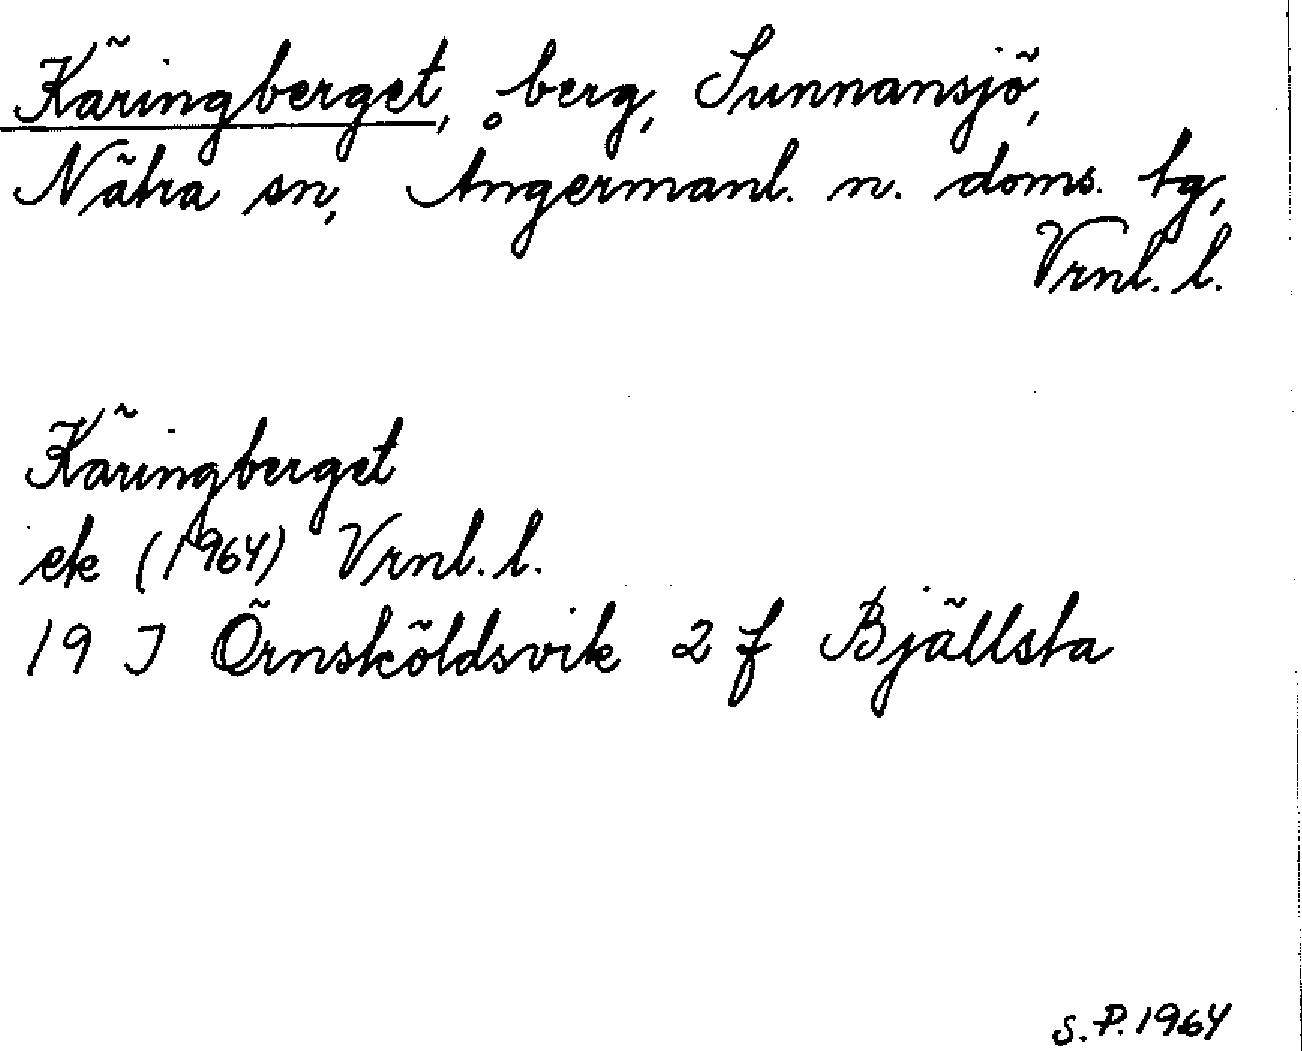 Käringberget, berg, Sunnansjö,
Nätra sn, Ångermanl. n. doms. tg,
Vrnl. l.
Käringberget
ek (1964) Vrnl. l.
19 J Örnsköldsvik 2 f Bjällsta
S.P. 1964